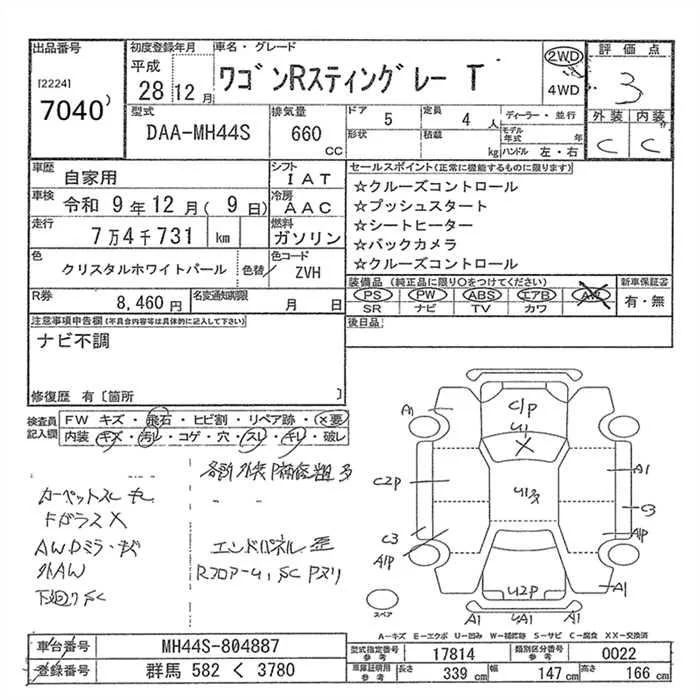 出品番号
[2224]
7040
初度登録年月
平成
28 12 月
車名・グレード
ワゴンRスティングレー T
2WD
4WD
評価点
3
外装 内装
C C
型式
DAA-MH44S
排気量
660
CC
ドア 5
形状
定員 4 人
積載 kg
ディーラー・並行
モデル年式 年
ハンドル 左・右
車歴
自家用
シフト
IAT
車検 令和 9 年 12 月( 9 日)
冷房
AAC
走行
7 万 4 千 731 km
燃料
ガソリン
色
クリスタルホワイトパール
色替
色コード
ZVH
R券
8,460 円
名変通知期限
月 日
セールスポイント(正常に機能するものに限ります)
☆クルーズコントロール
☆プッシュスタート
☆シートヒーター
☆バックカメラ
☆クルーズコントロール
装備品(純正品に限り○をつけてください)
PS PW ABS エアB AW
SR ナビ TV カワ
新車保証書
有・無
後日品
注意事項申告欄(不具合内容等は具体的に記入して下さい)
ナビ不調
修復歴 有〔箇所 〕
検査員記入欄
FW キズ・飛石・ヒビ割・リペア跡・×要
内装・キズ・汚レ・コゲ・穴・スレ・キレ・破レ
カーペットスレ
FガラスX
外AW
下廻りSC
エンドパネル歪
A1
C/P
U1
X
C2P
A1
C3
C3
A1P
A1P
U2P
A1
A1
UA1
A1
スペア
A-キズ E-エクボ U-凹み W-補修跡 S-サビ C-腐食 XX-交換済
車台番号
MH44S-804887
登録番号
群馬 582 く 3780
型式指定番号
参考
17814
類別区分番号
参考
0022
車庫証明用
参考
長さ 339 cm
幅 147 cm
高さ 166 cm